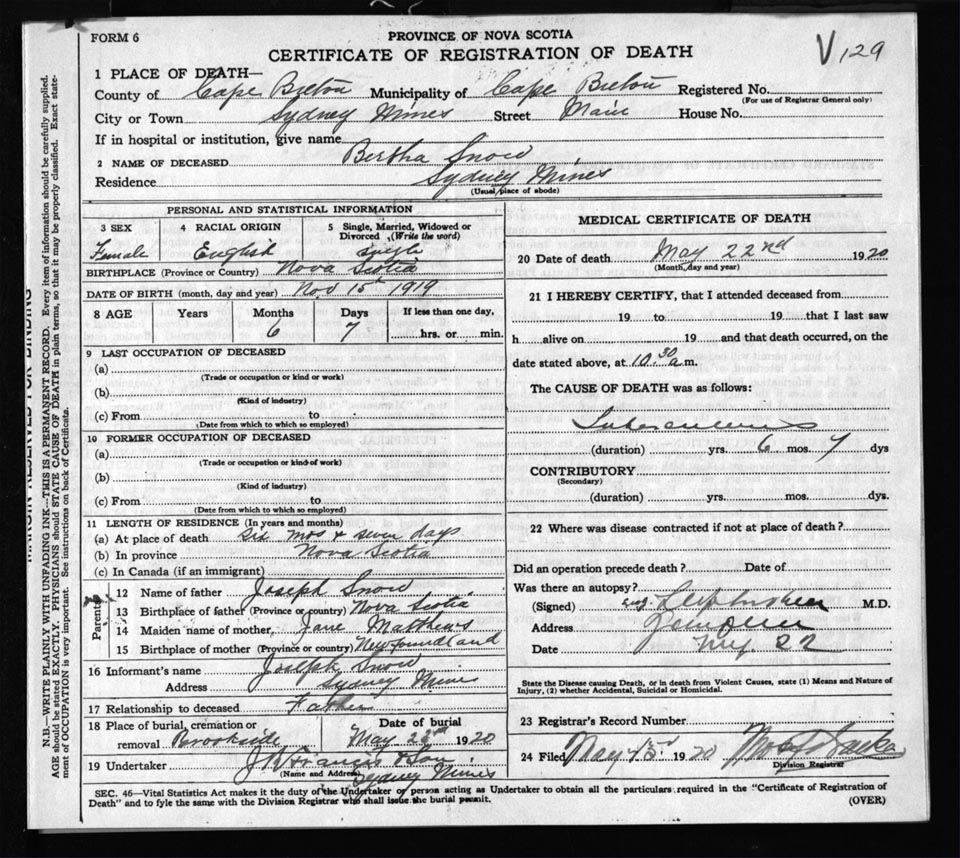 FORM 6
PROVINCE OF NOVA SCOTIA
CERTIFICATE OF REGISTRATION OF DEATH
V129
1 PLACE OF DEATH—
County of Cape Breton Municipality of Cape Breton Registered No.
(For use of Registrar General only)
City or Town Sydney Mines Street Main House No.
If in hospital or institution, give name
2 NAME OF DECEASED Bertha Snow
Residence Sydney Mines
(Usual place of abode)
MARGIN RESERVED FOR BINDING
N.B.—WRITE PLAINLY WITH UNFADING INK—THIS IS A PERMANENT RECORD. Every item of information should be carefully supplied.
AGE should be stated EXACTLY. PHYSICIANS should STATE CAUSE OF DEATH in plain terms, so that it may be properly classified. Exact statement of OCCUPATION is very important. See instructions on back of Certificate.
PERSONAL AND STATISTICAL INFORMATION
3 SEX 4 RACIAL ORIGIN 5 Single, Married, Widowed or Divorced (Write the word)
Female English Single
BIRTHPLACE (Province or Country) Nova Scotia
DATE OF BIRTH (month, day and year) Nov 15th 1919
8 AGE Years Months Days If less than one day,
6 7 hrs. or min.
9 LAST OCCUPATION OF DECEASED
(a)
(Trade or occupation or kind or work)
(b)
(Kind of industry)
(c) From to
(Date from which to which so employed)
10 FORMER OCCUPATION OF DECEASED
(a)
(Trade or occupation or kind of work)
(b)
(Kind of industry)
(c) From to
(Date from which to which so employed)
11 LENGTH OF RESIDENCE (In years and months)
(a) At place of death Six mos & seven days
(b) In province Nova Scotia
(c) In Canada (if an immigrant)
Parents
12 Name of father Joseph Snow
13 Birthplace of father (Province or country) Nova Scotia
14 Maiden name of mother, Jane Matthews
15 Birthplace of mother (Province or country) Newfoundland
16 Informant's name Joseph Snow
Address Sydney Mines
17 Relationship to deceased Father
18 Place of burial, cremation or removal Brookside Date of burial May 1920
19 Undertaker J Francis & Son
(Name and Address) Sydney Mines
MEDICAL CERTIFICATE OF DEATH
20 Date of death May 22nd 1920
(Month, day and year)
21 I HEREBY CERTIFY, that I attended deceased from
19 to 19 that I last saw
h alive on 19 and that death occurred, on the
date stated above, at 10.30 a.m.
The CAUSE OF DEATH was as follows:
Tuberculosis
(duration) yrs. 6 mos. 7 dys
CONTRIBUTORY
(Secondary)
(duration) yrs. mos. dys.
22 Where was disease contracted if not at place of death?
Did an operation precede death? Date of
Was there an autopsy?
(Signed) M.D.
Address
Date May 22
State the Disease causing Death, or in death from Violent Causes, state (1) Means and Nature of Injury, (2) whether Accidental, Suicidal or Homicidal.
23 Registrar's Record Number
24 Filed May 1920
Division Registrar
SEC. 46—Vital Statistics Act makes it the duty of the Undertaker or person acting as Undertaker to obtain all the particulars required in the "Certificate of Registration of
Death" and to fyle the same with the Division Registrar who shall issue the burial permit. (OVER)